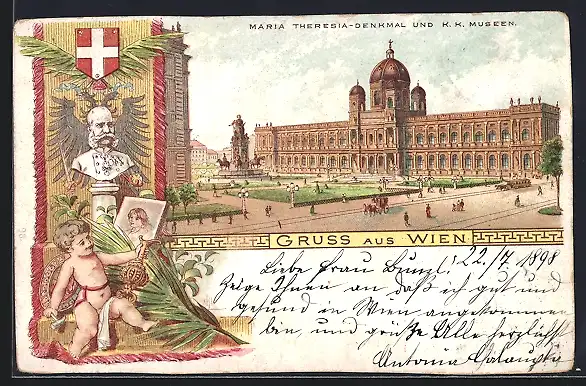 MARIA THERESIA-DENKMAL UND K. K. MUSEEN.
GRUSS AUS WIEN
22./7 1898
Liebe Frau
Zeige Ihnen an daß ich gut und
gesund in Wien angekommen
bin, und grüße Alle herzlichst
Antonia